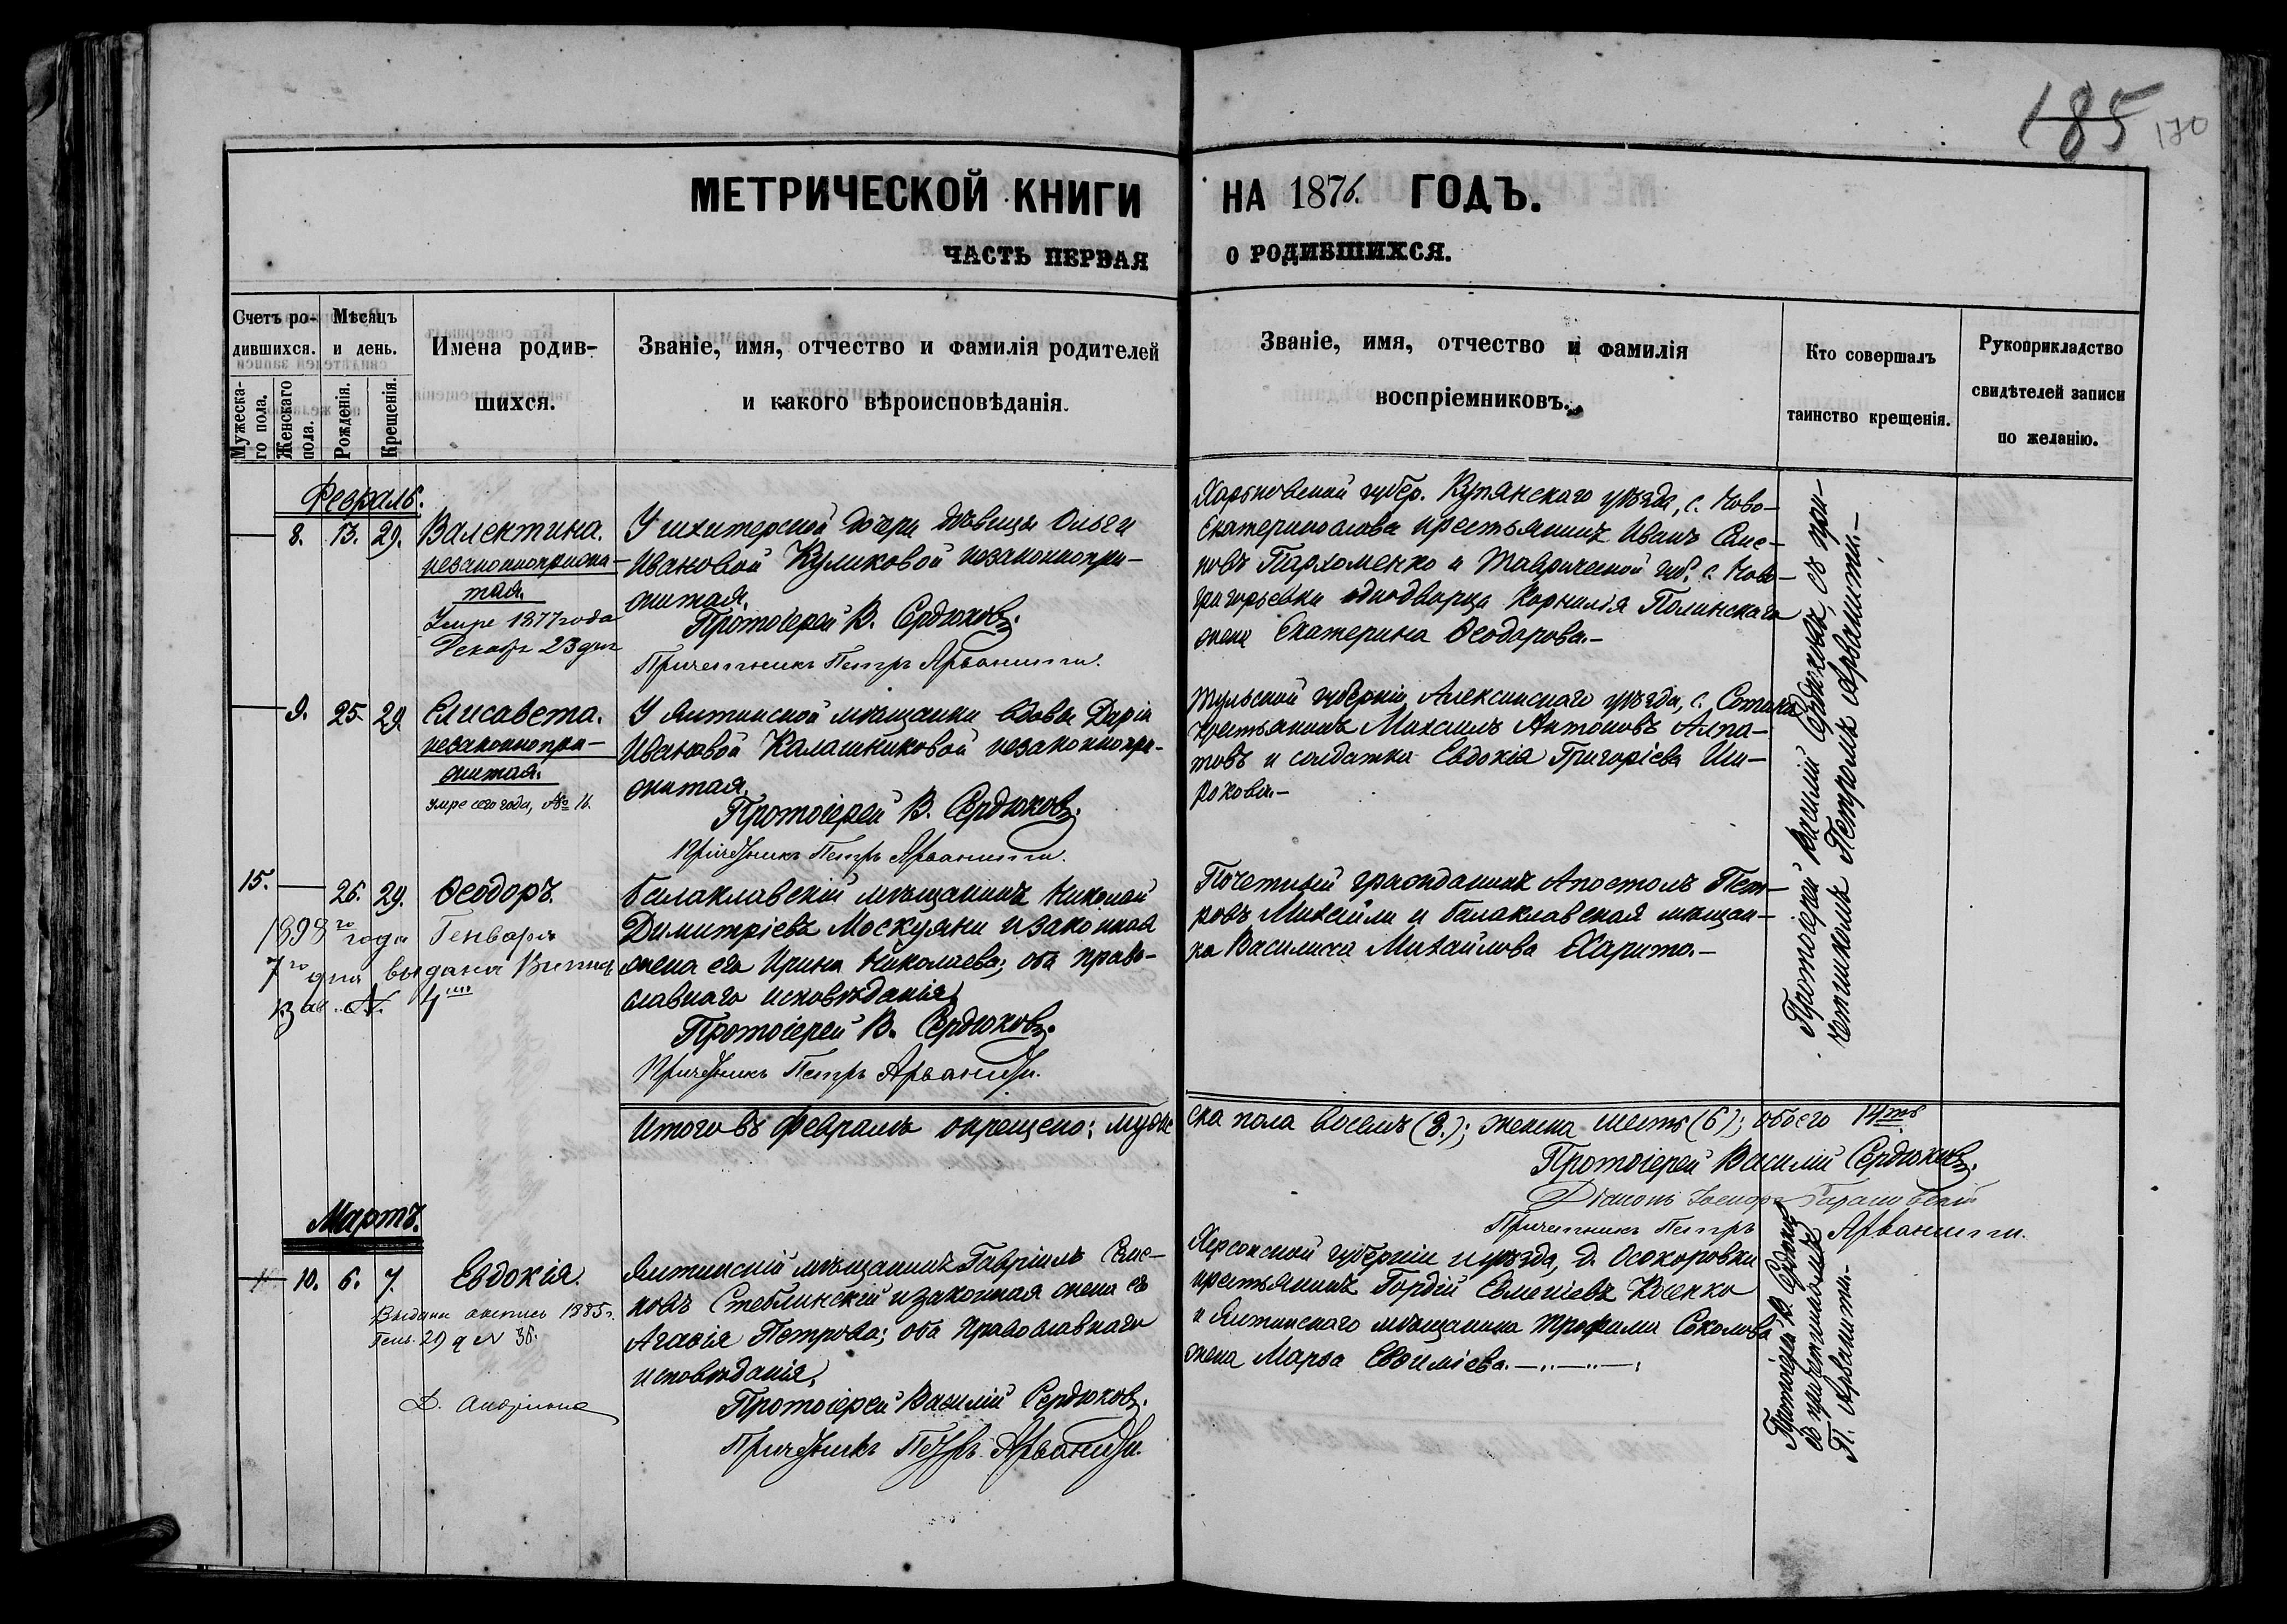 185 170
МЕТРИЧЕСКОЙ КНИГИ НА 1876. ГОДЪ.
ЧАСТЬ ПЕРВАЯ О РОДИВШИХСЯ.
Счетъ ро-
дившихся.
Мужеска-
го пола.
Женскаго
пола.
Мѣсяцъ
и день.
Рожденія.
Крещенія.
Имена родив-
шихся.
Званіе, имя, отчество и фамилія родителей
и какого вѣроисповѣданія.
Званіе, имя, отчество и фамилія
воспріемниковъ.
Кто совершалъ
таинство крещенія.
Рукоприкладство
свидѣтелей записи
по желанію.
Февраль.
8. 13. 29. Валентина.
незаконнорожи-
тая.
Умре 1877 года
Декабр 23 дня
У шкиперской дочери дѣвицы Ольги
Ивановой Куликовой незаконнопри-
житая.
Протоіерей В. Сердюковъ.
Причетникъ Петръ Арванитти.
Харьковской губер. Купянскаго уѣзда, с. Ново-
Екатеринослава крестьянинъ Иванъ Семе-
новъ Пархоменко и Таврической губ. с. Ново-
григорьевки однодворца Корнилія Полинскаго
жена Екатерина Ѳеодорова.-
Протоіерей Василій Сердюковъ, съ при-
четникомъ Петромъ Арванитти.-
9. 25. 29 Елисавета.
незаконнопри-
житая.
умре сего года, № 16.
У Ялтинской мѣщанки вдовы Даріи
Ивановой Калашниковой незаконнопри-
житая.
Протоіерей В. Сердюковъ.
Причетникъ Петръ Арванитти.
Тульской губерніи Алексинскаго уѣзда, с. Сотина
крестьянинъ Михаилъ Антоновъ Алпа-
товъ и солдатка Евдокія Григоріева Ши-
рокова.-
15. 26. 29. Ѳеодоръ.
1898 го года Генваря
7 го дня выдана Выпись
за №. 4
Балаклавскій мѣщанинъ Николай
Димитріевъ Москуяни и законная
жена его Ирина Николаева; оба право-
славнаго исповѣданія.
Протоіерей В. Сердюковъ.
Причетникъ Петръ Арванитти.
Почетный гражданинъ Апостолъ Пет-
ровъ Михайли и балаклавская мѣщан-
ка Василика Михайлова Харито.-
Итого въ Февралѣ окрещено: мужескa пола восемь (8.); женска шесть (6); обоего 14ть
Протоіерей Василій Сердюковъ.
Діаконъ Іосифъ
Причетникъ Петръ Арванитти.
Мартъ.
10. 6. 7. Евдокія.
Выдана выпись 1885 г.
Генв. 29 д N 36.
Ялтинскій мѣщанинъ Гавріилъ Семе-
новъ Стеблинскій и законная жена его
Агаѳія Петрова; оба православнаго
исповѣданія.
Протоіерей Василій Сердюковъ.
Причетникъ Петръ Арванитти.
Херсонской губерніи и уѣзда, д. Осокоровки
крестьянинъ Гордій Евменіевъ Косенко
и Ялтинскаго мѣщанина Трофима Соколова
жена Марѳа Евѳиміева.
Протоіерей В. Сердюковъ
съ причетникомъ
П. Арванитти.-